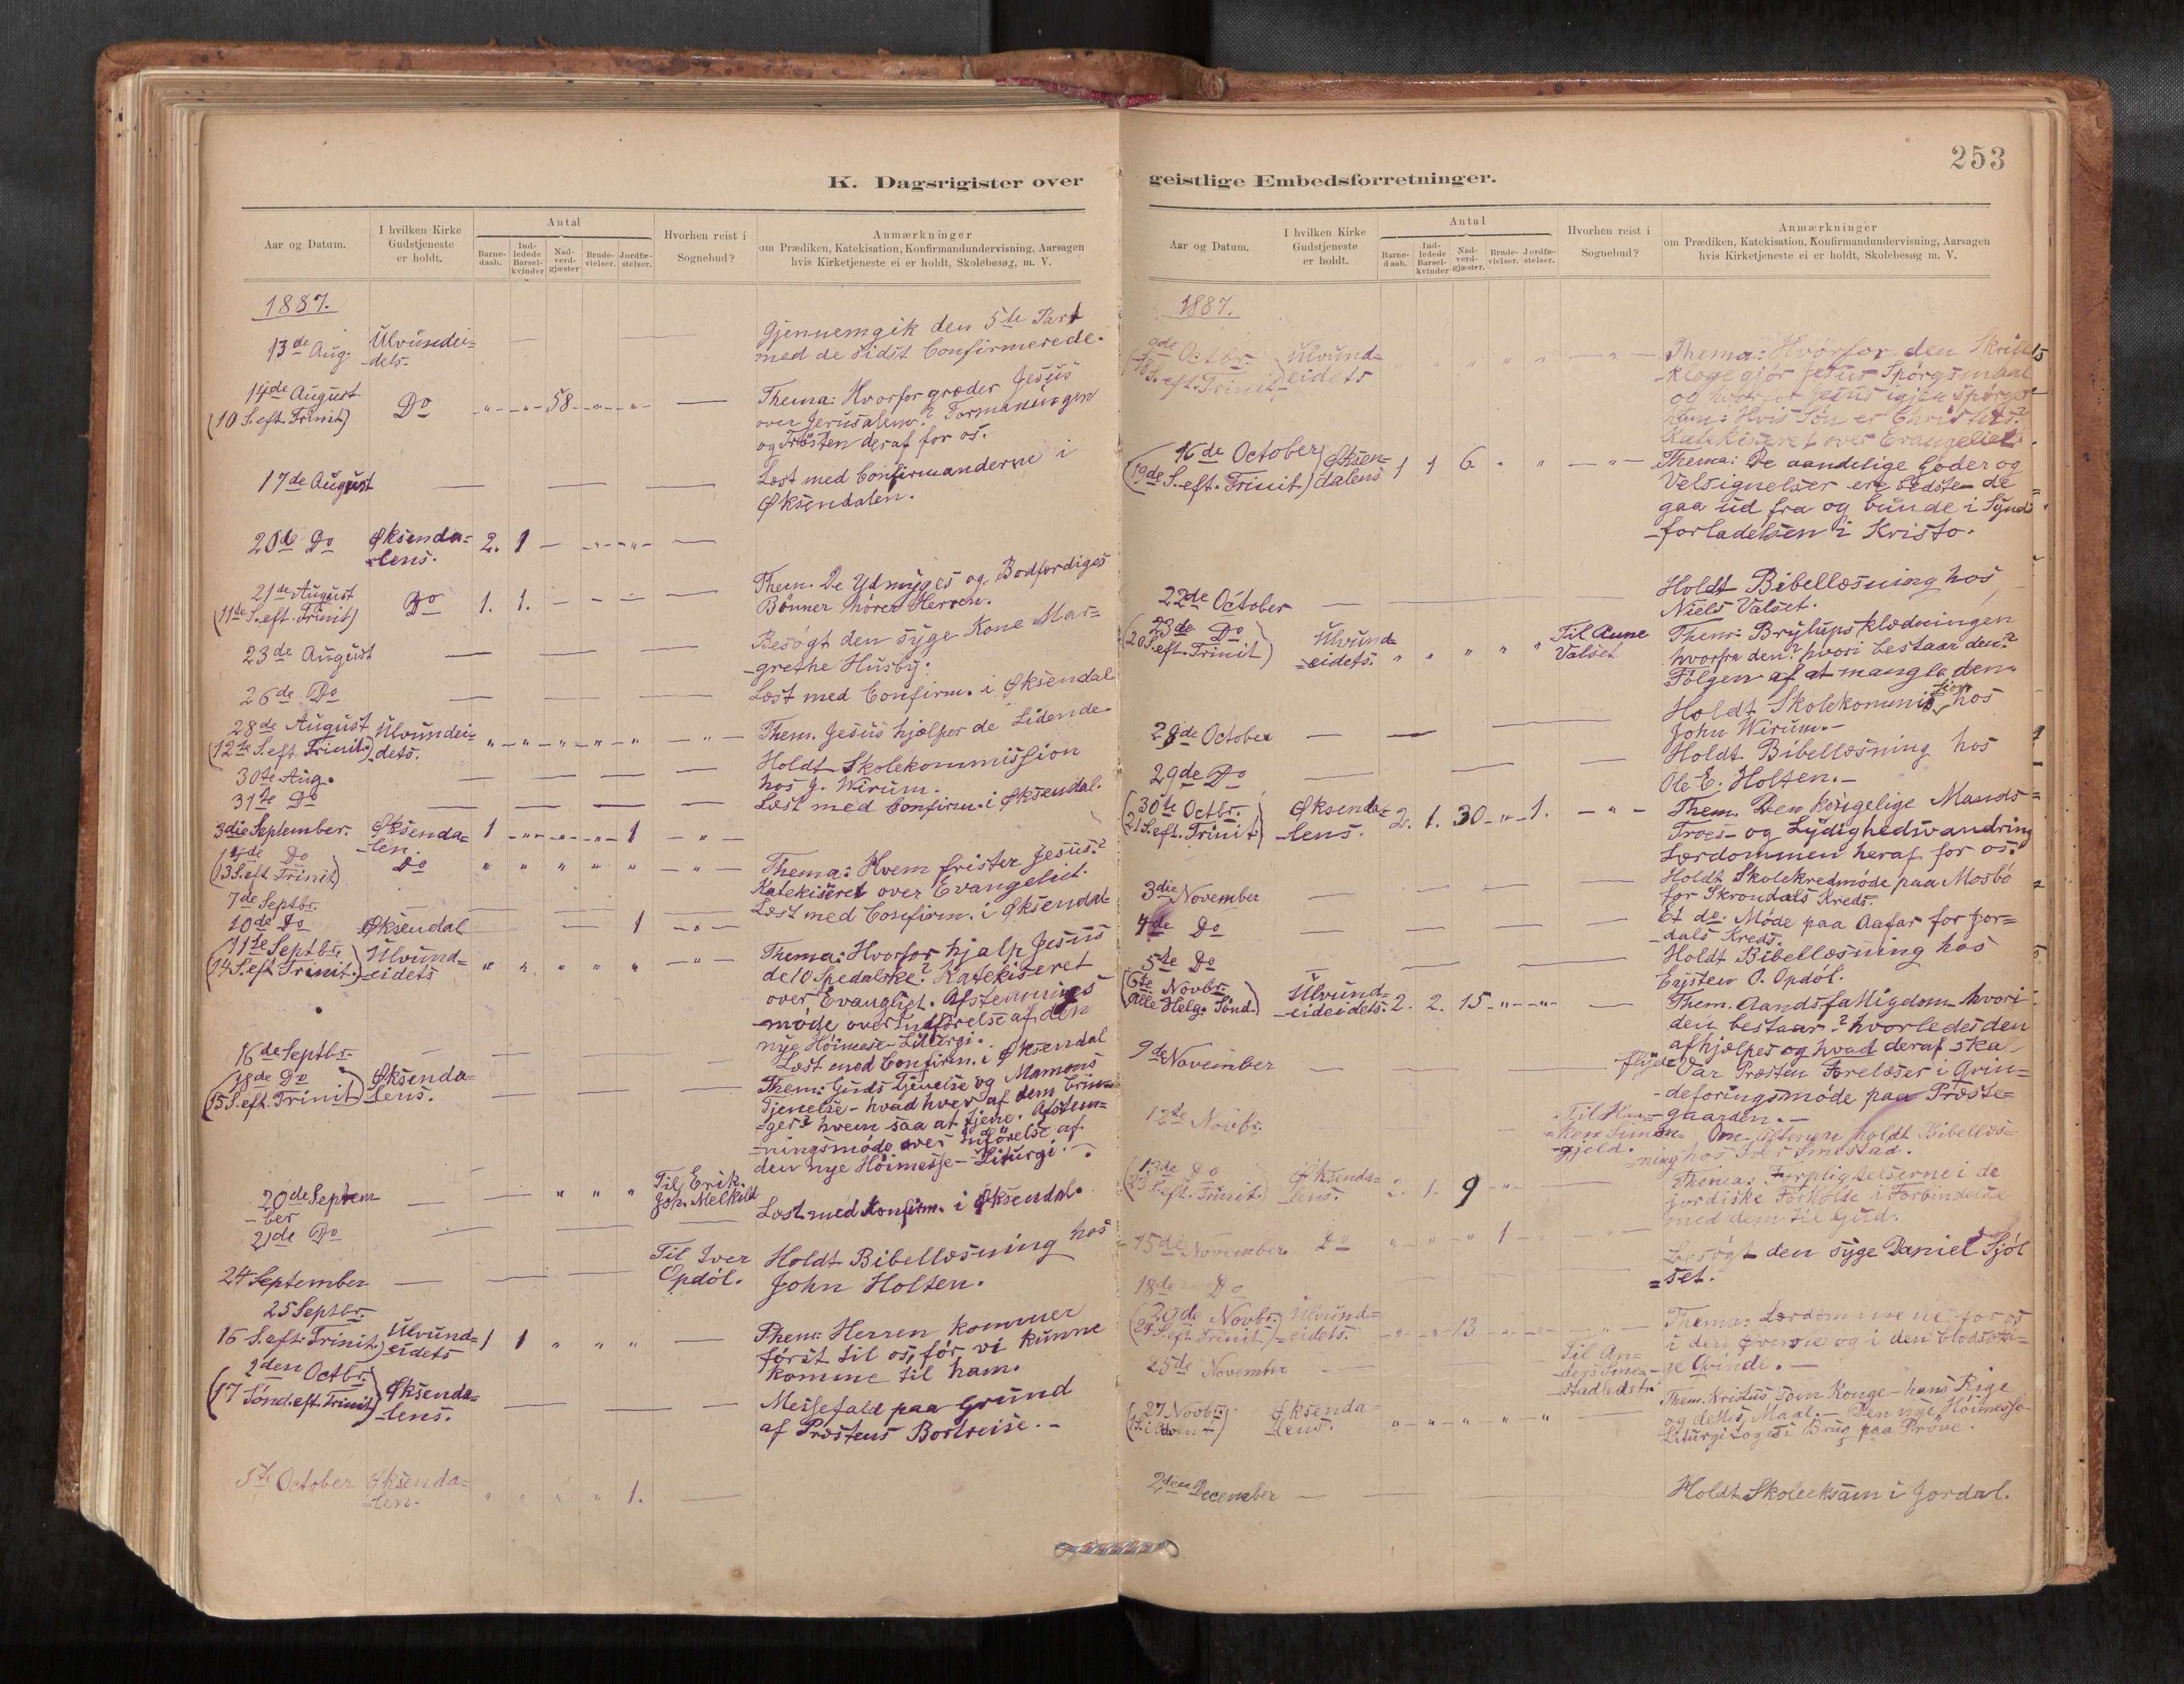 253
K. Dagsrigister over
geistlige Embedsforretninger.
Aar og Datum.
I hvilken Kirke
Gudstjeneste
er holdt.
Antal
Barne-
daab.
Ind-
ledede
Barsel-
kvinder
Nad-
verd-
gjæster
Brude-
vielser.
Jordfæ-
stelser.
Hvorhen reist i
Sognebud?
Anmærkninger
om Prædiken, Katekisation, Konfirmandundervisning, Aarsagen
hvis Kirketjeneste ei er holdt, Skolebesøg, m. V.
1887.
13de Aug. Ulvundei-
-dets. — — —
Gjennemgik den 5te Part
med de sidst Confirmerede.
14de August
(10 S. eft. Trinit) Do -„-„-58-„-„- —
Thema: Hvorfor græder Jesus
over Jerusalem? Formaningen
og Trøsten deraf for os.
17de August — — —
Læst med Confirmanderne i
Øksendalen.
20de Do Øksenda=
-lens. 2. 1 — -„-„- —
21de August
(11te S. eft. Trinit) Do 1. 1. — — — —
Them. De Ydmyges og Bodfærdiges
Bønner hører Herren.
23de August — — —
Besøgt den syge Kone Mar=
-grethe Husby.
26de Do — — —
Læst med Confirm. i Øksendal
28de August
(12te S. eft. Trinit.) Ulvundei-
dets. „-„-„-„-„ -„-
Them. Jesus hjælper de Lidende.
30te Aug. — — —
Holdt Skolekommission
hos J. Wirum.
31te Do — — —
Læst med Confirm. i Øksendal.
3die September. Øksenda=
-len. 1 -„-„-„- 1 -„-
4de Do
(13 S. eft Trinit) Do „ „ „ „ „ -„-
Thema: Hvem frister Jesus?
Katekiseret over Evangeliet.
7de Septbr. — — —
Læst med Confirm. i Øksendal
10de Do Øksendal — 1 -„-
11te Septbr.
(14 S. eft Trinit.) Ulvund=
-eidets „ „ „ „ „ -„-
Thema: Hvorfor hjalp Jesus
de 10 Spedalske? Katekiseret
over Evangliet. Afstemnings
-møde over Indførelse af den
nye Høimesse-Liturgi.
16de Septbr. — — —
Læst med Confirm. i Øksendal
18de Do
(15 S. eft. Trinit) Øksenda=
lens. — — —
Them: Guds Tjeneste og Mamons
Tjeneise - hvad hver af dem brin=
=ger? hvem saa at tjene. Afstem=
-ningsmøde over Indførelse af
den nye Høimesse-Liturgi.
20de Septem
-ber — — „ „ „ Til Erik
Joh. Melkild
21de Do — — —
Læst med Konfirm. i Øksendal.
24 September — — — Til Iver
Opdøl.
Holdt Bibellæsning hos
John Holten.
25 Septbr.
16 S. eft. Trinit.) Ulvund=
eidets 1 1 „ „ „ —
Them: Herren kommer
først til os, før vi kunne
komme til ham.
2den Octbr.
(17 Sønd. eft. Trinit) Øksenda=
-lens. — — —
Messefald paa Grund
af Præstens Bortreise. -
5te October Øksenda=
-len. „ „ „ „ 1. —
Aar og Datum.
I hvilken Kirke
Gudstjeneste
er holdt.
Antal
Barne-
daab.
Ind-
ledede
Barsel-
kvinder
Nad-
verd-
gjæster.
Brude-
vielser.
Jordfæ-
stelser.
Hvorhen reist i
Sognebud?
Anmærkninger
om Prædiken, Katekisation, Konfirmandundervisning, Aarsagen
hvis Kirketjeneste ei er holdt, Skolebesøg m. V.
1887.
9de Octbr.
S. eft. Trinit Ulvund=
eidets „ „ „ „ „ -„-
Thema: Hvorfor den Skrift
-kloge gjør Jesus Spørgsmaal
og hvorfor Jesus igjen spørger
ham: Hvis Søn er Christus?
Katekiseret over Evangeliet.
16de October
(19de S. eft. Trinit) Øksen-
dalens 1 1 6 „ „ -„-
Thema: De aandelige Goder og
Velsignelser ere bedste - de
gaa ud fra og bunde i Synd=
-forladelsen i Kristo.
22de October — — —
Holdt Bibellæsning hos
Niels Valset.
23de Do
(20 S. eft. Trinit) Ulvund=
=eidets. „ „ „ „ „ Til Aune
Valset
Them: Bryllupsklædningen
hvorfra den? hvori bestaar den?
Følgen af at mangle den.
28de October — — —
Holdt Skolekommission hos
John Wirum.-
29de Do — — —
Holdt Bibellæsning hos
Ole E. Holten.-
30te Octbr.
(21 S. eft. Trinit) Øksenda=
-lens. 2. 1. 30 -„- 1. -„-
Them. Den kongelige Mands
Troes- og Lydighedsvandring
Lærdommen heraf for os.
3die November — — —
Holdt Skolekredmøde paa Mosbø
for Skrondals Kreds.
4de Do — — —
Et do. Møde paa Aafar for Jor=
-dals Kreds.
5te Do — — —
Holdt Bibellæsning hos
Eysten O. Opdøl.
6te Novbr.
(Alle Helg. Sønd.) Ulvund=
-eideidets. 2. 2. 15 -„-„- —
Them. Aandsfattigdom - hvori
den bestaar? hvorledes den
afhjælpes og hvad deraf skal
flyde
9de November — — —
Var Præsten Forelæser i Grin=
-deforingsmøde paa Præste=
-gaarden. -
12te Novbr. — — —
gjeld.
Om Aftenen holdt Bibellæs-
=ning hos Iver Smestad.
13de Do
(23 S. eft. Trinit.) Øksenda=
lens. 2. 1. 9 -„- —
Thema: Forpligtelserne i de
jordiske Forholde i Forbindelse
med dem til Gud.
15de November Do „ „ „ „ 1 —
18de Do — — —
Besøgt den syge Daniel Sjøl
=set.
20de Novbr.
(24 S. eft Trinit.) Ulvund=
=eidets. -„-„- 13 -„-„- —
Thema: Lærdommene for os
i den Øverste og i den blodsotti=
ge Qvinde. -
25de November — — Til An=
ders Sme=
-stadledstr
27 Novbr.
(1 S. i Advent) Øksenda=
lens. „-„-„-„-„ —
Them. Kristus som Konge - hans Rige
og dettes Maal. - Den nye Høimesse-
Liturgi toges i Brug paa Prøve.
2den December — — —
Holdt Skoleeksam i Jordal.